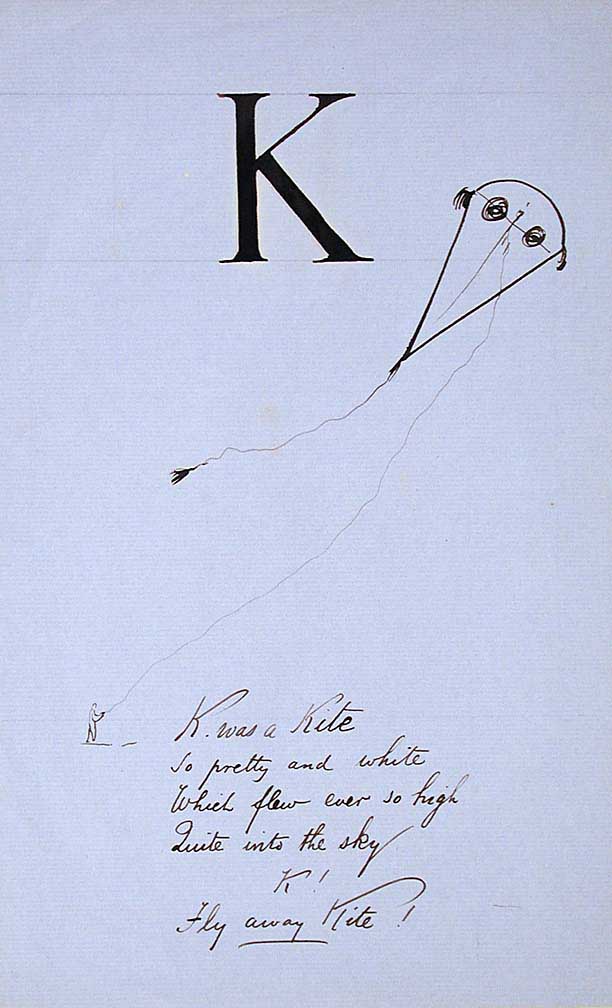 K
K. was a Kite
So pretty and white
Which flew ever so high
Quite into the sky
K!
Fly away Kite!